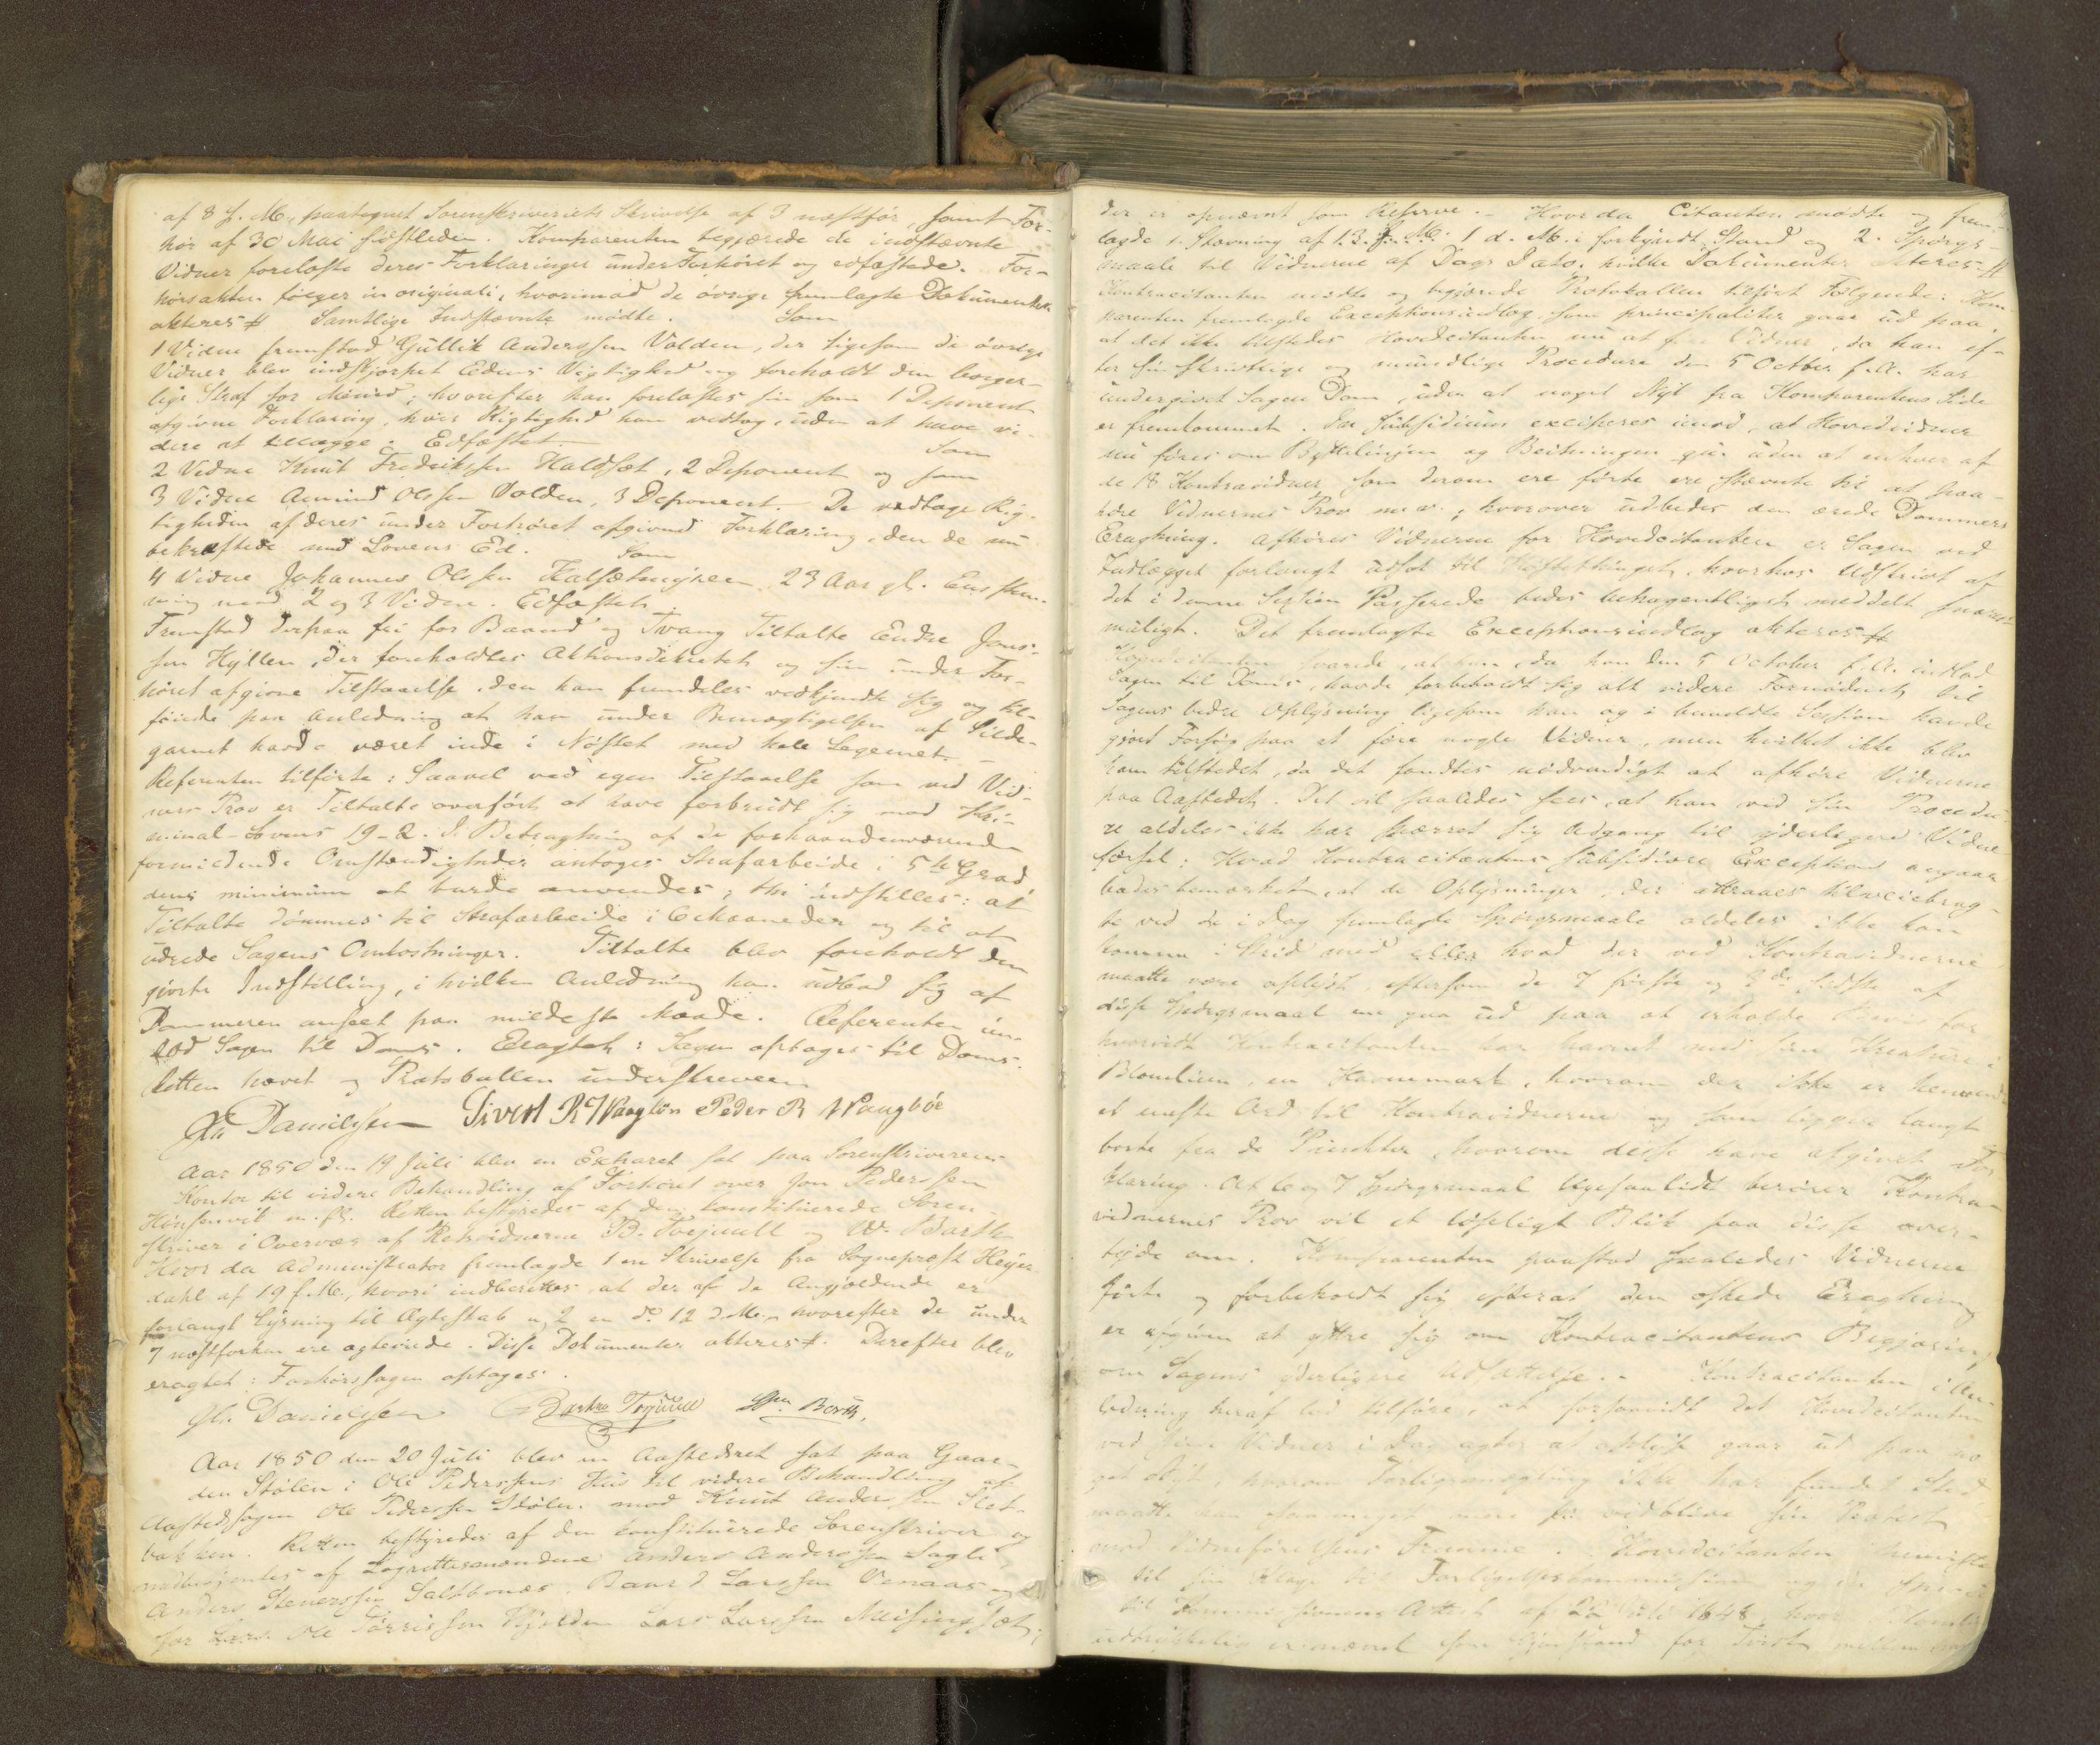 af 8 f. M., paategnet Sorenskriveriets Skrivelse af 3 næstfør, samt For-
hør af 30 Mai sidstleden. Komparenten begjærede de indstævnte
Vidner forelæste deres Forklaringer under Forhøret og edfæstede. For-
hørsakten følger in originali, hvorimod de øvrige fremlagte Dokumenter
akteres # Samtlige Indstævnte mødte. Som
1 Vidne fremstod Gullik Anderssen Volden, der ligesom de øvrige
Vidner blev indskjærpet Edens Vigtighed og foreholdt den borger-
lige Straf for Meened; hvorefter han forelæstes sin som 1 Deponent
afgivne Forklaring, hvis Rigtighed han vedtog, uden at have vi-
dere at tillægge. Edfæstet. Som
2 Vidne Knut Fredrikssen Haldset, 2 Deponent og som
3 Vidne Amund Olssen Volden, 3 Deponent. De vedtage Rig-
tigheden af deres under Forhøret afgivne Forklaring, den de nu
bekræftede med Lovens Ed. Som
4 Vidne Johannes Olssen Kalsætmyren 23 Aar gl. Enssten-
mig med 2 og 3 Vidne. Edfæstet.
Fremstod derpaa fri for Baand og Tvang Tiltalte Endre Jons-
sen Hyllen, der foreholdtes Aktionsdekretet og sin under For-
høret afgivne Tilstaaelse, den han fremdeles vedkjendte sig og til-
føiede paa Anledning at han under Bemægtigelsen af Silde-
garnet havde været inde i Nøstet med hele Legemet. -
Referenten tilførte: Saavel ved egen Tilstaaelse som ved Vid-
ners Prov er Tiltalte overført at have forbrudt sig mod Kri-
minal-Lovens 19-2. I Betragtning af de forhaandenværende
formildende Omstændigheder antoges Strafarbeide i 5te Grad
dens minimum at burde anvendes; thi indstilles: at
Tiltalte dømmes til Strafarbeide i 6 Maaneder og til at
udrede Sagens Omkostninger. Tiltalte blev foreholdt den
gjorte Indstilling, i hvilken Anledning han udbad sig af
Dommeren anseet paa mildeste Maade. Referenten in-
lod Sagen til Doms. Eragtet: Sagen optages til Doms.
Retten hævet og Protokollen underskreven
Danielssen Sivert R Waagbøe Peder R Waagbøe
Aar 1850 den 19 Juli blev en Extraret sat paa Sorenskriverens
Kontor til videre Behandling af Forhøret over Jon Pederssen
Honsenvik m. fl. Retten bestyredes af den konstituerede Soren-
skriver i Overvær af Retsvidnerne B. Tvejuell og W. Barth
Hvor da Administrator fremlagde 1 en Skrivelse fra Sognepræst Heyer-
dahl af 19 f. M., hvori indberettes, at der af de Angjældende er
forlangt Lysning til Ægteskab og 2 en do 12 d. M., hvorefter de under
7 næstforhen ere ægteviede. Disse Dokumenter akteres #. Derefter blev
eragtet: Forhørssagen optages.
Danielssen
Aar 1850 den 20 Juli blev en Aastedsret sat paa Gaar-
den Stølen i Ole Pederssens Huus til videre Behandling af
Aastedssagen Ole Pederssen Stølen mod Knut Anderssen Slet-
bakken. Retten bestyredes af den konstituerede Sorenskriver og
medbetjentes af Lagrettesmændene Anders Anderssen Lagli,
Anders Stenerssen Saltbones, Baard Larssen Venaas og
for Lars Ole Tørrissen Hjorden Lars Larssen Meisingset,
der er opnævnt som Reserve. - Hvor da Citanten mødte og frem-
lagde 1. Stævning af 13 f. M. 1 d. M. i forkyndt Stand og 2. Spørgs-
maale til Vidnerne af Dags Dato, hvilke Dokumenter akteres #
Kontracitanten mødte og begjærede Protokollen tilført Følgende: Kom-
parenten fremlagde Exceptionsindlæg, som principaliter gaar ud paa,
at det ikke tilstedes Hovedcitanten nu at føre Vidner, da han ef-
ter sin skriftlige og mundlige Procedure den 5 Octbr. f. A. har
undergivet Sagen Dom, uden at noget Nyt fra Komparentens Side
er fremkommet. In Subsidium exciperes imod, at Hovedvidner
nu føres om Byttelinjen og Beitningen uden at enhver af
de 18 Kontravidner, som derom ere førte ere stævnte til at paa-
høre Vidnernes Prov m. v., hvorover udbedes den ærede Dommers
Eragtning. Afhøres Vidnerne for Hovedcitanten er Sagen ved
Indlægget forlangt udsat til Høsttthinget, hvorhos Udskrivt af
det i denne Session Passerede bedes behageligst meddelt snarest
muligt. Det fremlagte Exceptionsindlæg akteres #
Hovedcitanten svarede, at han, da han den 5 October f. A. indlod
Sagen til Doms, havde forbeholdt sig alt videre Fornødent til
Sagens bedre Oplysning ligesom han og i bemeldte Session havde
gjort Forsøg paa at føre nogle Vidner, men hvilket ikke blev
ham tilstedet, da det fandtes nødvendigt at afhøre Vidnerne
paa Aastedet. Det vil saaledes sees, at han ved sin Procedu-
re aldeles ikke har spærret sig Adgang til yderligere Vidne
førsel: Hvad Kontracitantens subsidiære Exception angaar
bedes bemærket, at de Oplysninger, der attraaes tilveiebrag-
te ved de i Dag fremlagte Spørgsmaale aldeles ikke kan
komme i Strid med eller hvad der ved Kontravidnerne
maatte være oplyst, eftersom de 7 første og 2de sidste af
disse Spørgsmaal gaa ud paa at erholde Bevis for
hvorvidt Kontracitanten har havnet med sine Kreature i
Blomlien, en Havnemark, hvorom der ikke er henvendt
et eneste Ord til Kontravidnerne og som ligger langt
borte fra de Punkter, hvorom disse have afgivet For
klaring. At 6 og 7 Spørgsmaal ligesaalidt berører Kontra-
vidnernes Prov vil et løseligt Blik paa disse over-
tyde om. Komparenten paastod saaledes Vidnerne
førte og forbeholdt sig efterat den æskede Eragtning
er afgiven at yttre sig om Kontracitantens Begjæring
om Sagens yderligere Udsættelse. - Kontracitanten i An-
ledning heraf lod tilføre, at forsaavidt det Hovedcitanten
ved sine Vidner i Dag agter at oplyse gaar ud paa no
get Nyt, hvorom Forligsmægling ikke har fundet Sted
maatte han saameget mere vedblive sin Protest
mod Vidneførselens Fremme. Hovedcitanten henviste
til sin Klage til Forligelseskommissionen og
til Kommissionens Attest af Juli 1848, hvor Blomlien
udtrykkelig er nævnt som Gjenstand for Tvist mellem